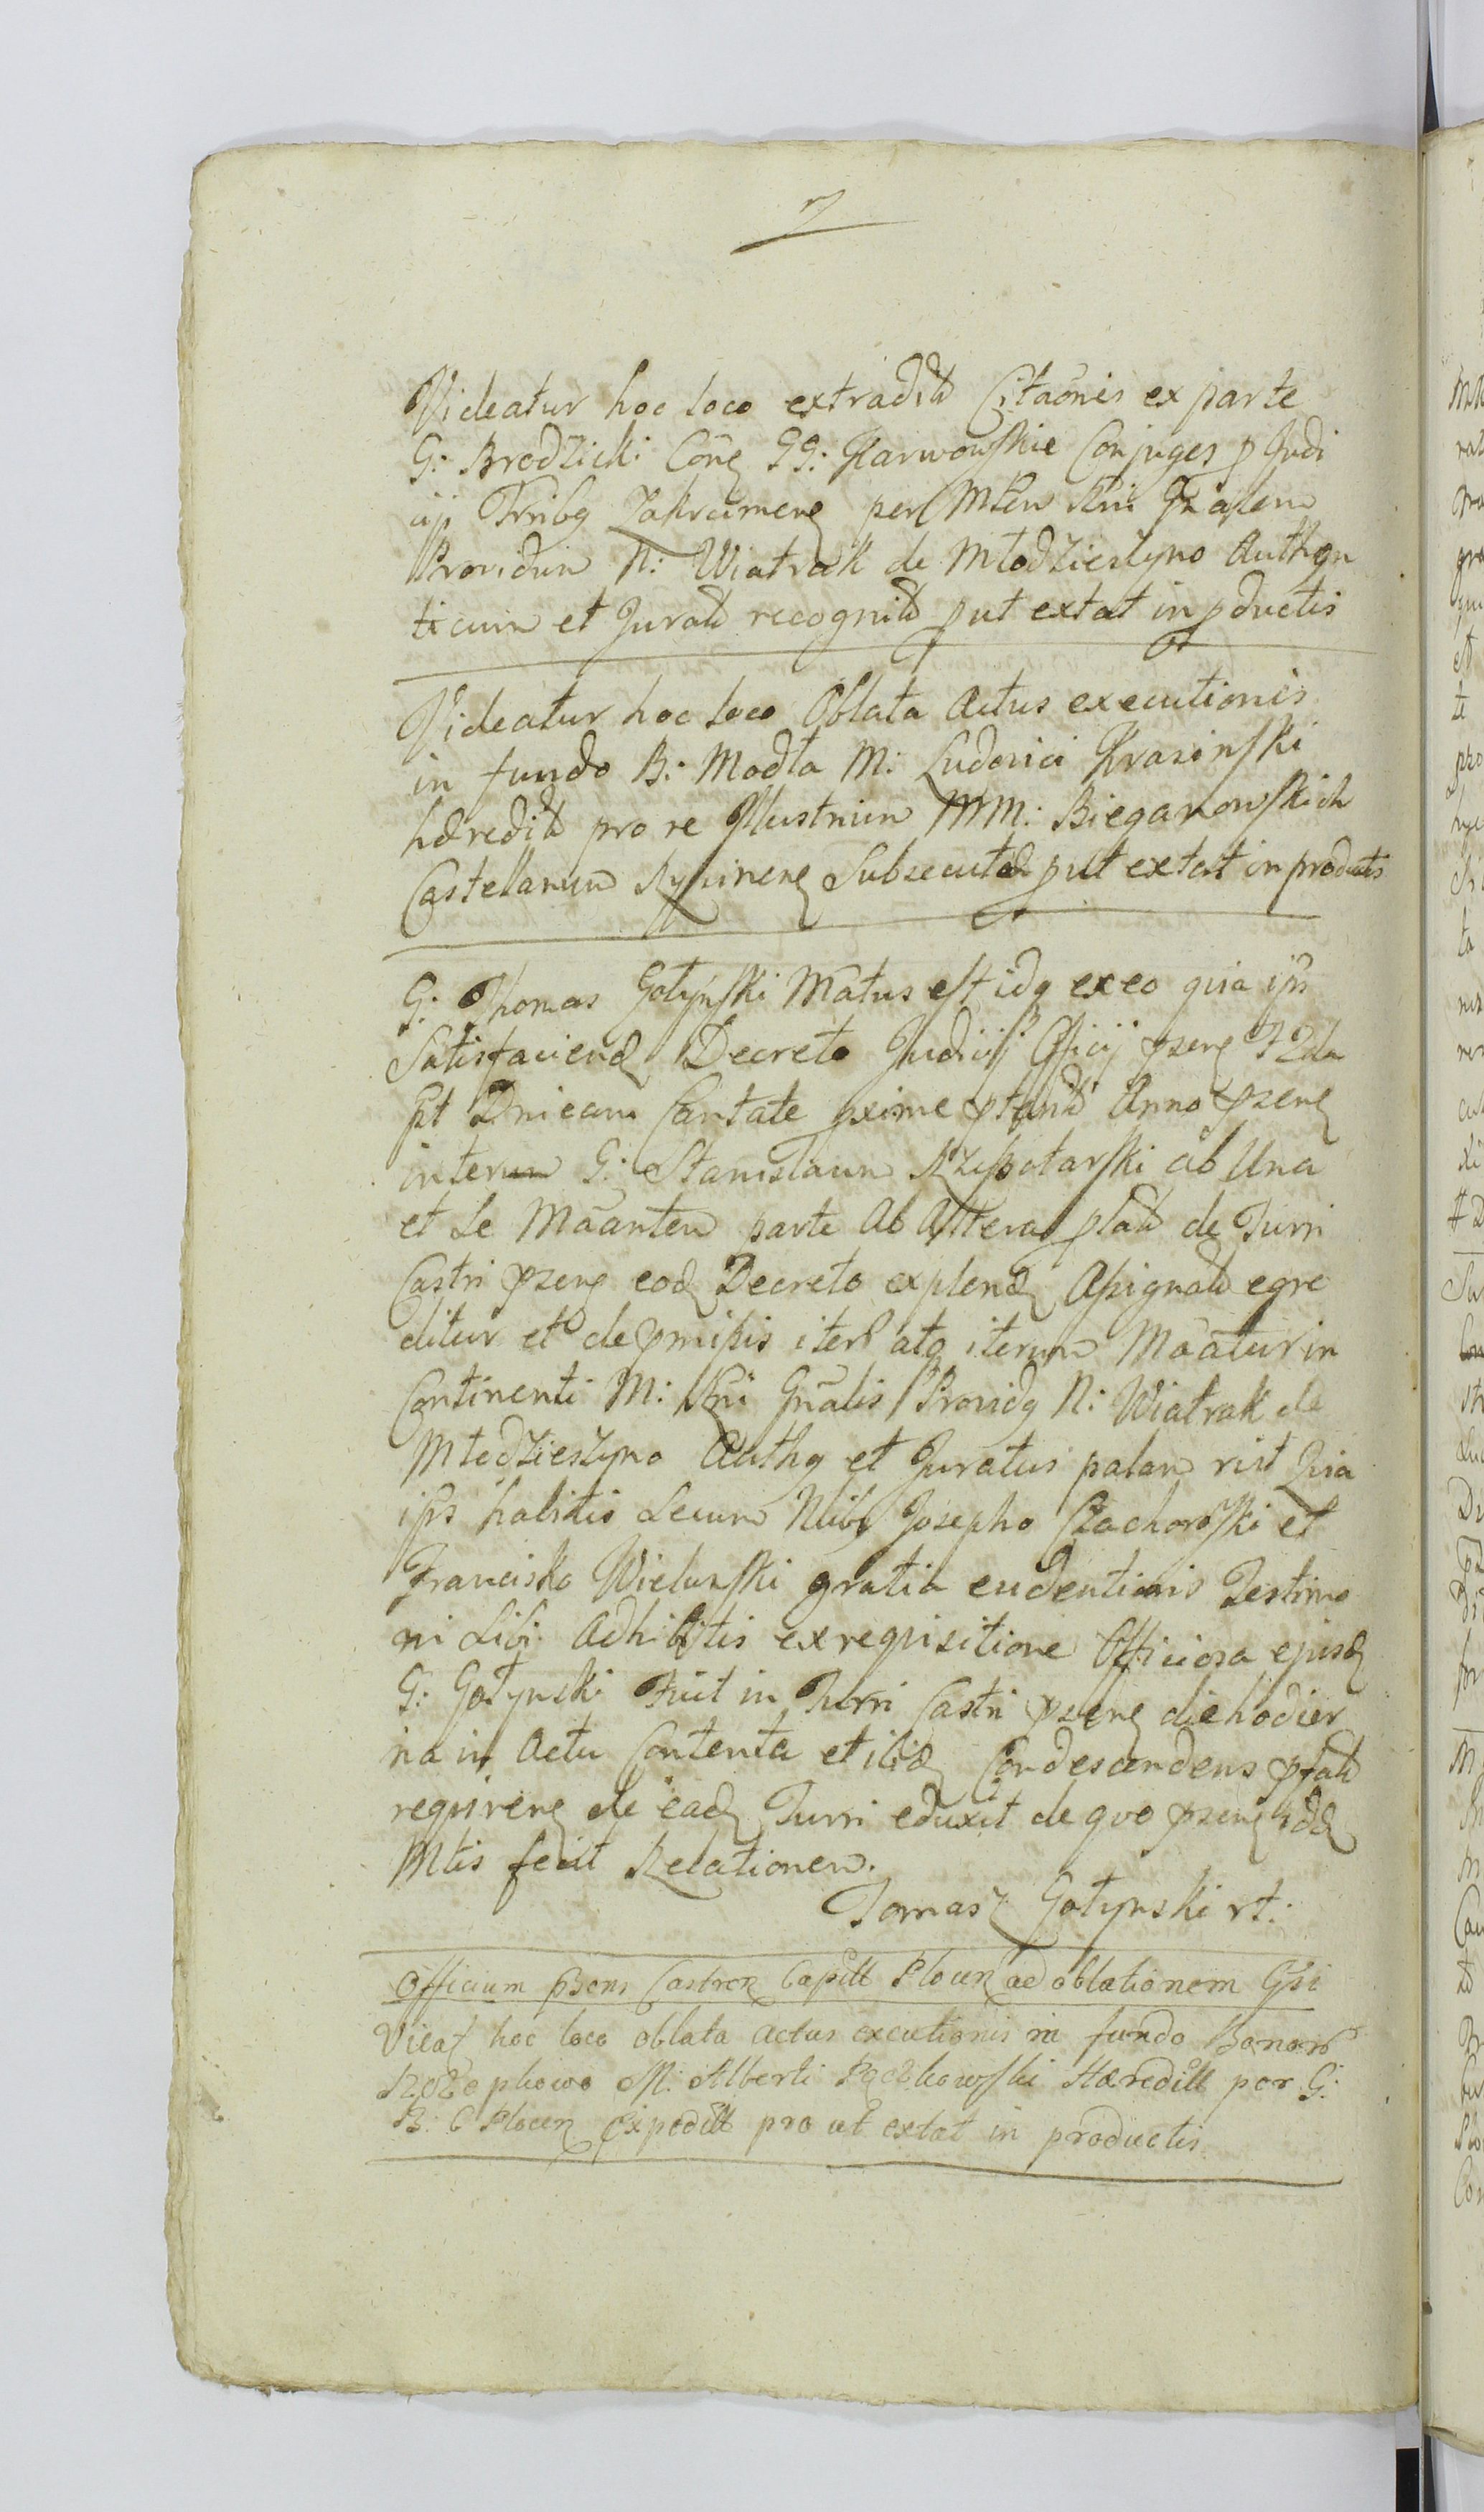 7
Videatur hoc loco extradit Citaōnis ex parte
G: Brodzicki Coñ GG: Karwowskie Conjuges p Judi
cij Trib Zakrcimen per Mtem Rni Gnalem
Providum N: Wiatrak de Młodzieszyno Authen
ticum et Jurat recognit put extat in pductis
Videatur hoc loco Oblata Actus executionis
in fundo B: Modła M: Ludovici Krasinski
hæredit pro re Illustrium MM: Bieganowskich
Castellanum Rypinen Subsecuta put extat in productis
G: Thomas Gołyński Matus est idq ex eo quia ips
Satisfaciend Decreto Judicij Officij pzen Fda
Pt Dnicam Cantate pxime pterit Anno pzen
inter G: Stanislaum Rzeszotarski ab Una
et Se Mãantem parte Ab Altera plat de Turri
Castri pzen eod Decreto explend Assignat egre
ditur et de pmissis iter atq iterum Mãatur in
Continenti M: Rni Gnalis Providq N: Wiatrak de
Młodzieszyno Authq et Juratus palam rit Quia
ips habitis Secum Nlib Josepho Czachorowski et
Francisko Wielunski gratia evidentioris Testimo
ni Sibi Adhibitis ex requisitione Officiosa ejusd
G: Gołynski Fuit in Turri Castri pzen die hodier
na in Actu Contenta et ibid Condescendens pfat
requiren de ead Turri eduxit de quo pzen idd
Mtis fecit Relationem.
Tomasz Gołynski rt:
Officium Psens Castren Capitl Plocen ad oblationem Gsi
Vieat hoc loco oblata actus executionis in fundo Bonor
M: Alberti Pęczkowski Hæreditt per G:
B: C Plocen Expeditt pro ut extat in productis